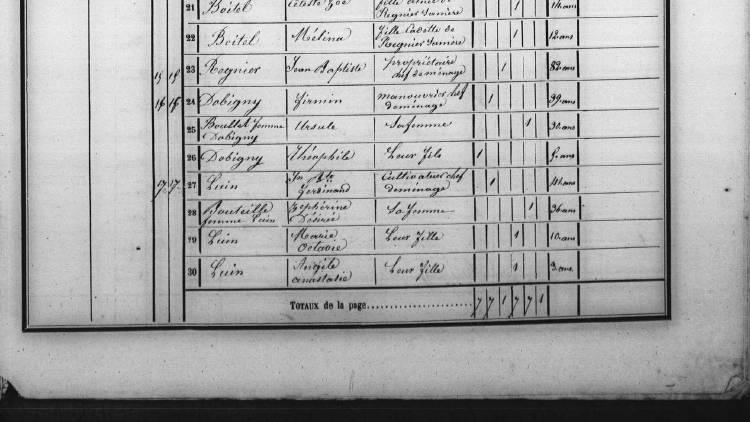 21 Boitel Céleste Zoé fille ainée de Regnier Sumère 1 14 ans
22 Boitel Mélina Fille Cadette de Regnier Sumère 1 12 ans
15 15 23 Regnier Jean Baptiste propriétaire chef de ménage 1 82 ans
16 16 24 Dobigny Firmin manouvrier chef de ménage 1 39 ans
25 Boullet femme Dobigny Ursule Sa femme 1 30 ans
26 Dobigny Théophile Leur fils 1 ans
17 17 27 Luin Jn Bte Ferdinand Cultivateur chef de ménage 1 41 ans
28 Bouteille femme Luin Zéphérine Désiré Sa femme 1 36 ans
29 Luin Marie Octavie Leur fille 1 10 ans
30 Luin Angèle anastasie Leur fille 1 3 ans
TOTAUX de la page 7 7 1 7 7 1